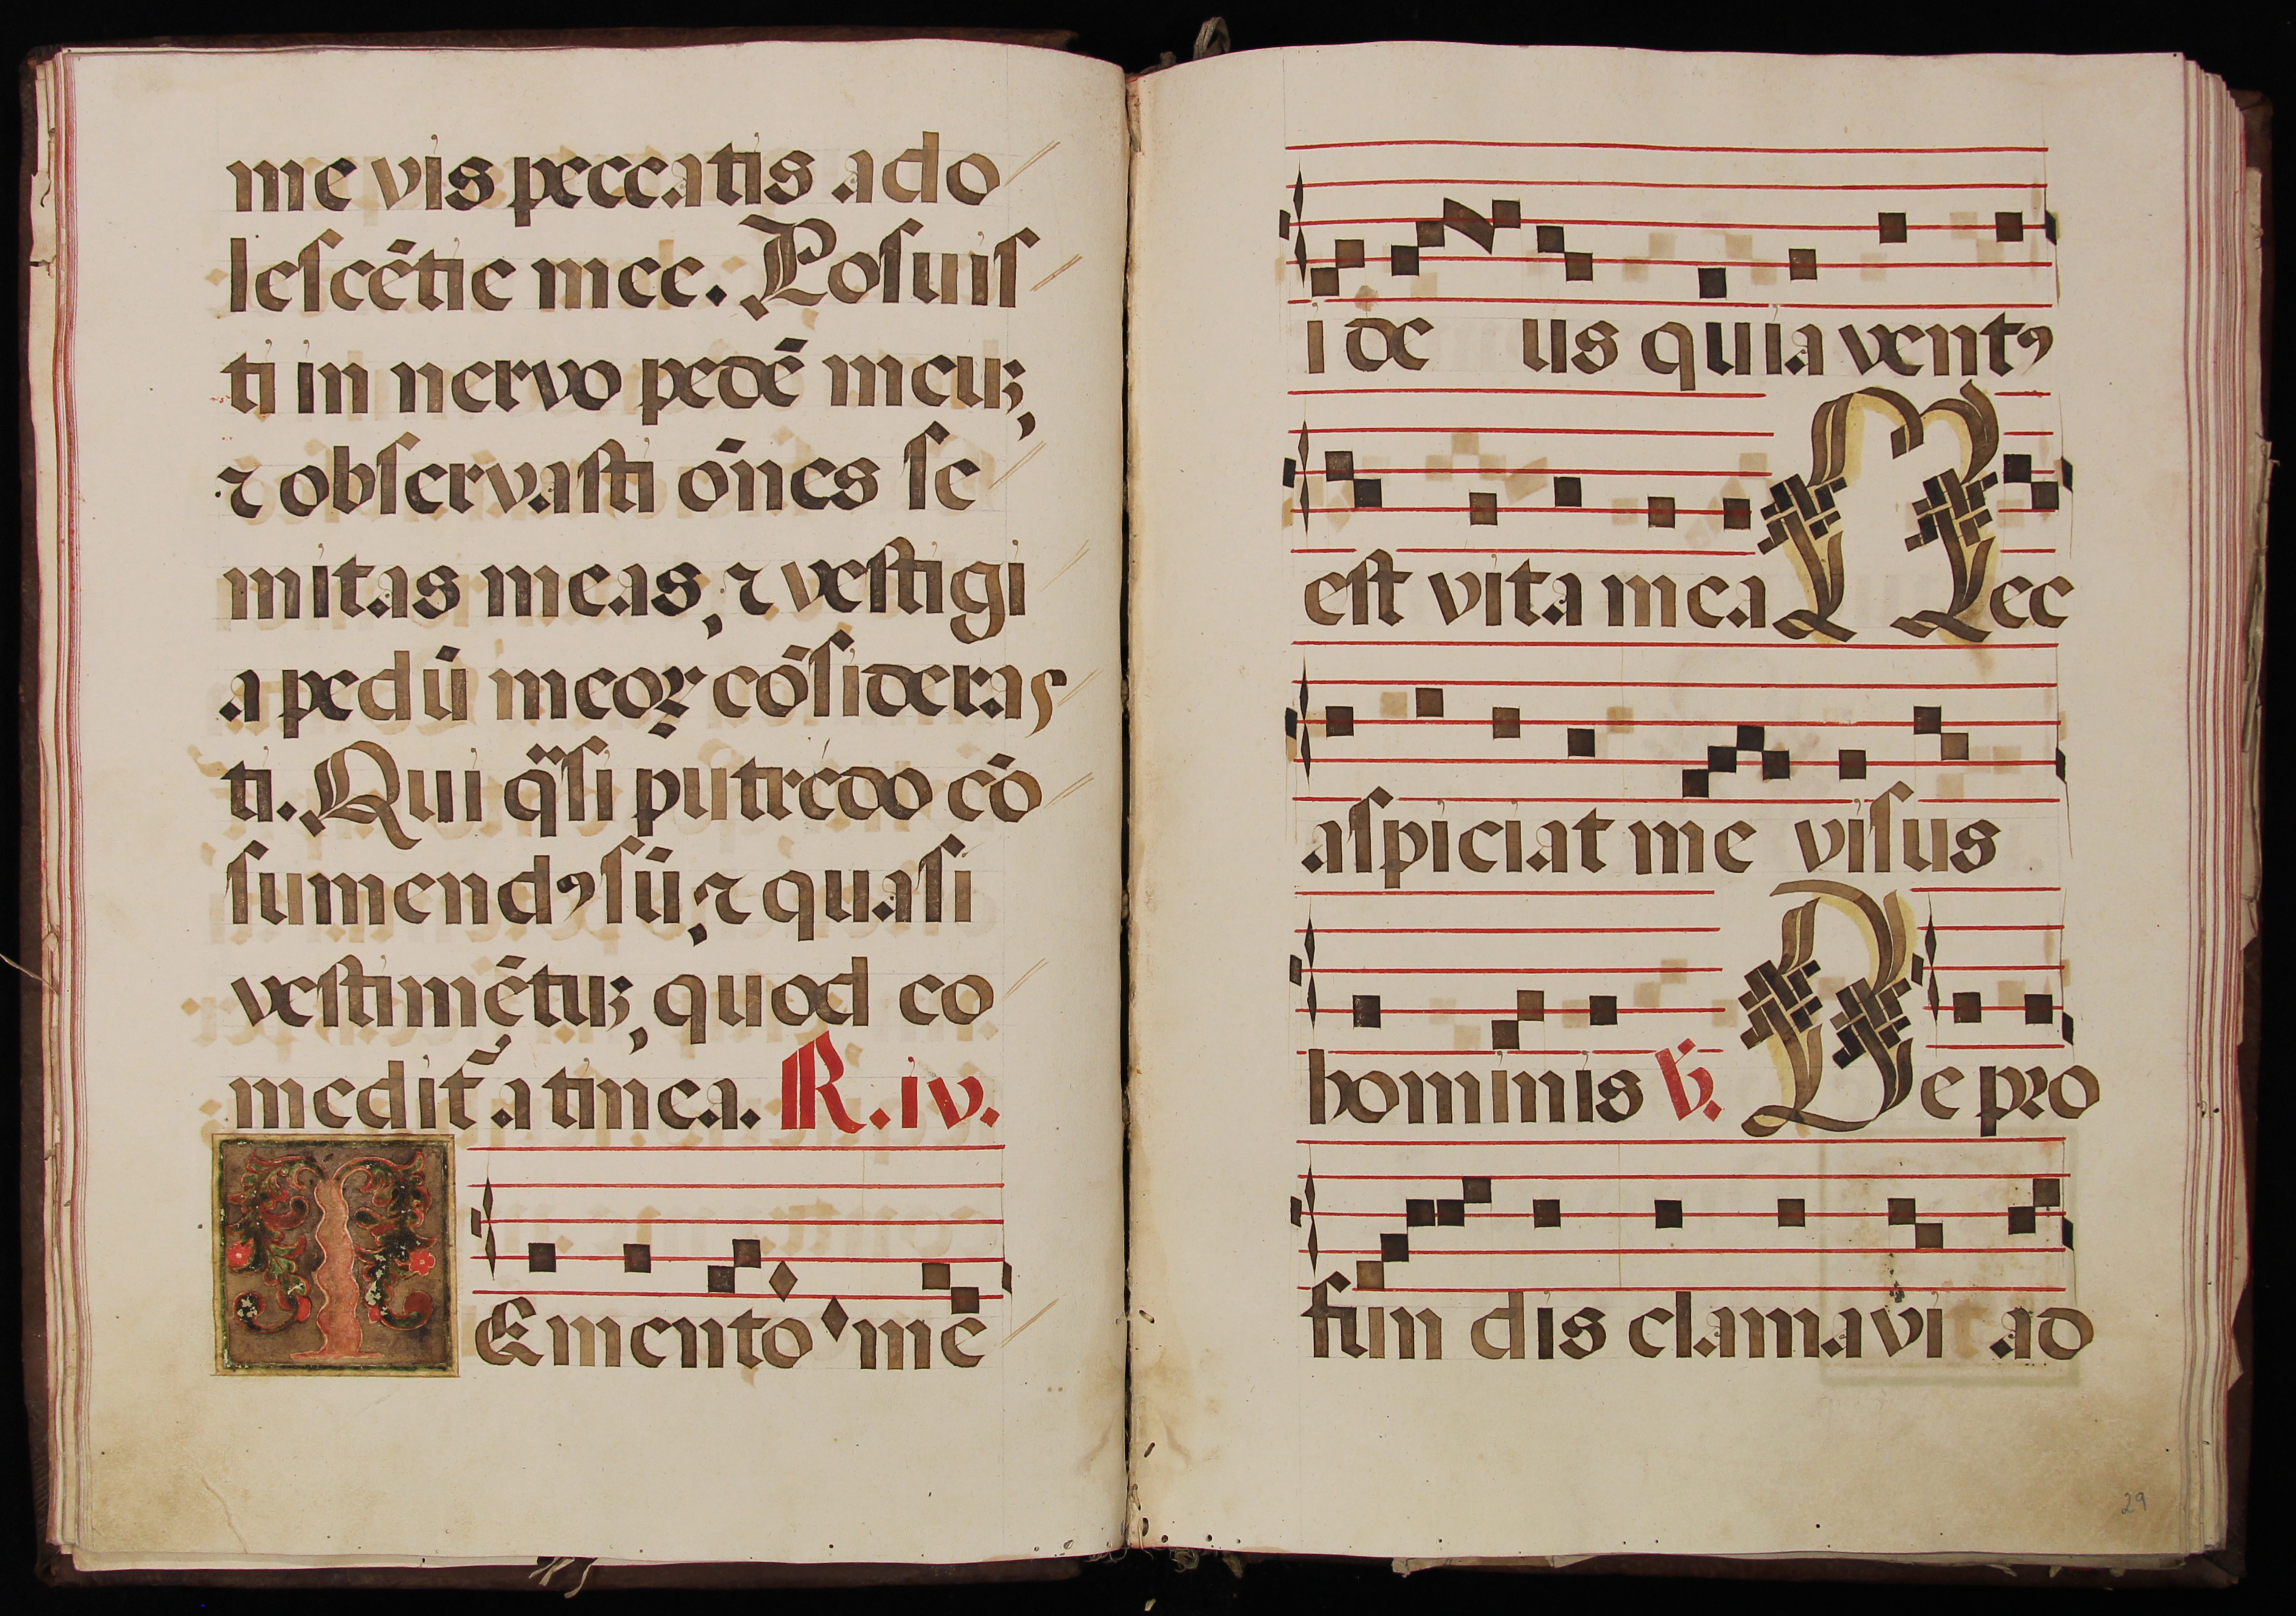 me vis peccatis ado
lescētie mee. Posuis
ti in nervo pedē meuʒ,
⁊ observasti ōnes se
mitas meas, ⁊ vestigi
a pedū meoꝝ cōsideras
ti. Qui q̄si putredo cō
sumendꝰ sū, ⁊ quasi
vestimētuʒ, quod co
medit᷑ a tinea. R. iv.
Memento me
i de us quia ventꝰ
est vita mea Nec
aspiciat me visus
hominis ℣. De pro
fun dis clamavi ad
29